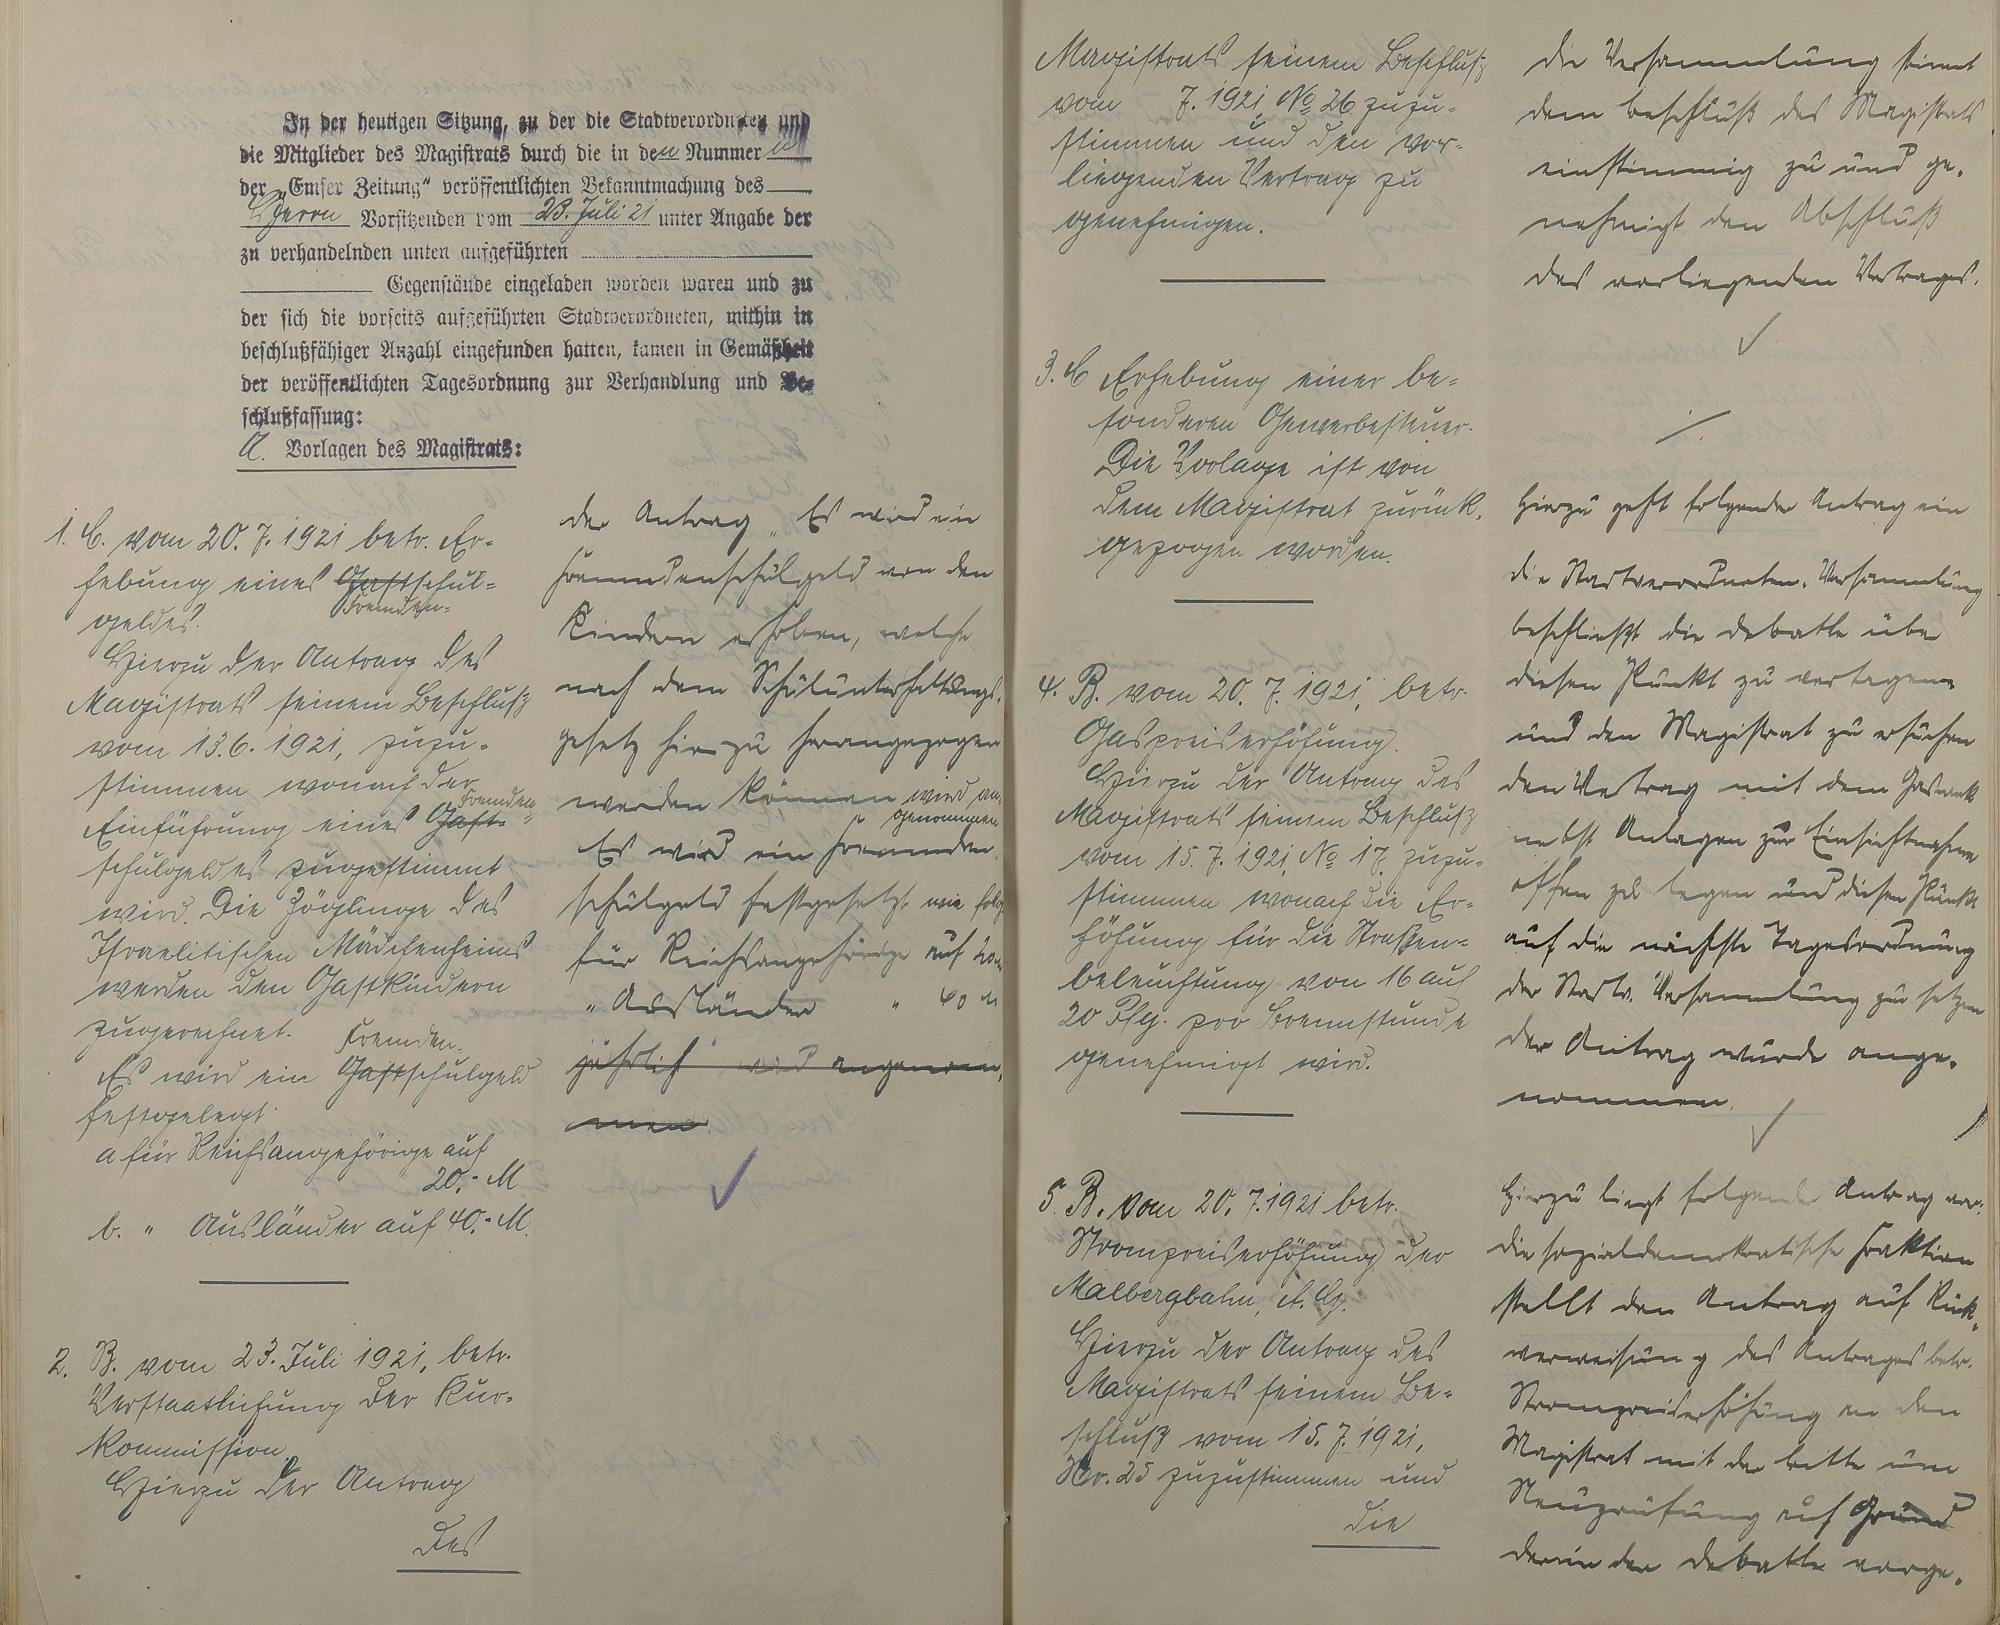 In der heutigen Sitzung, zu der die Stadtverordneten und
die Mitglieder des Magistrats durch die in den Nummer
der „Emser Zeitung“ veröffentlichten Bekanntmachung des
Herrn Vorsitzenden vom 23. Juli 21 unter Angabe der
zu verhandelnden unten aufgeführten
Gegenstände eingeladen worden waren und zu
der sich die vorseits aufgeführten Stadtverordneten, mithin in
beschlußfähiger Anzahl eingefunden hatten, kamen in Gemäßheit
der veröffentlichten Tagesordnung zur Verhandlung und Be-
schlußfassung:
A. Vorlagen des Magistrats:
1. C. vom 20. 7. 1921 betr. Er-
hebung eines Gastschul-
Fremden-
geldes.
Hierzu der Antrag des
Magistrats seinem Beschluß
vom 13. 6. 1921, zuzu-
stimmen wonach der
Fremden-
Einführung eines Gast-
schulgeldes zugestimmt
wird. Die Zöglinge des
Israelitischen Mädchenheims
werden den Gastkindern
zugerechnet.
Fremden-
Es wird ein Gastschulgeld
festgelegt
a für Reichsangehörige auf
20,- M
b. " Ausländer auf 40,- M.
2. B. vom 23. Juli 1921, betr.
Verstaatlichung der Kur-
kommission.
Hierzu der Antrag
des
der Antrag „Es wird ein
Fremdenschulgeld von den
Kindern erhoben, welche
nach dem Schulunterhaltungs-
gesetz hierzu herangezogen
werden können wird an-
genommen
Es wird ein Fremden-
schulgeld festgesetzt wie folgt
für Reichsangehörige auf 20 M
" Ausländer " 40 M
jährlich" wird angenom-
men.
Magistrats seinem Beschluß
vom 7. 1921, No 26 zuzu-
stimmen und den vor-
liegenden Vertrag zu
genehmigen.
3. C Erhebung einer be-
sonderen Gewerbesteuer.
Die Vorlage ist von
dem Magistrat zurück-
gezogen worden.
4. B. vom 20. 7. 1921, betr.
Gaspreiserhöhung.
Hierzu der Antrag des
Magistrats seinem Beschluß
vom 15. 7. 1921, No 17, zuzu-
stimmen wonach die Er-
höhung für die Straßen-
beleuchtung von 16 auf
20 Pfg. pro Brennstunde
genehmigt wird.
5. B. vom 20. 7. 1921 betr.
Strompreiserhöhung der
Malbergbahn, A. G.
Hierzu der Antrag des
Magistrats seinem Be-
schluß vom 15. 7. 1921,
Nr. 25 zuzustimmen und
die
die Versammlung stimmt
dem Beschluß des Magistrats
einstimmig zu und ge-
nehmigt den Abschluß
des vorliegenden Vertrages.
./.
Hierzu geht folgender Antrag ein
die Stadtverordneten-Versammlung
beschließt die Debatte über
diesen Punkt zu vertagen
und den Magistrat zu ersuchen
den Vertrag mit dem Gaswerk
nebst Anlagen zur Einsichtnahme
offen zu legen und diesen Punkt
auf die nächste Tagesordnung
der Stadtv. Versammlung zu setzen
der Antrag wurde ange-
nommen.
Hierzu liegt folgender Antrag vor:
die sozialdemokratische Fraktion
stellt den Antrag auf Rück-
verweisung des Antrages betr.
Strompreiserhöhung an den
Magistrat mit der Bitte um
Neuprüfung auf Grund
der in der Debatte vorge-